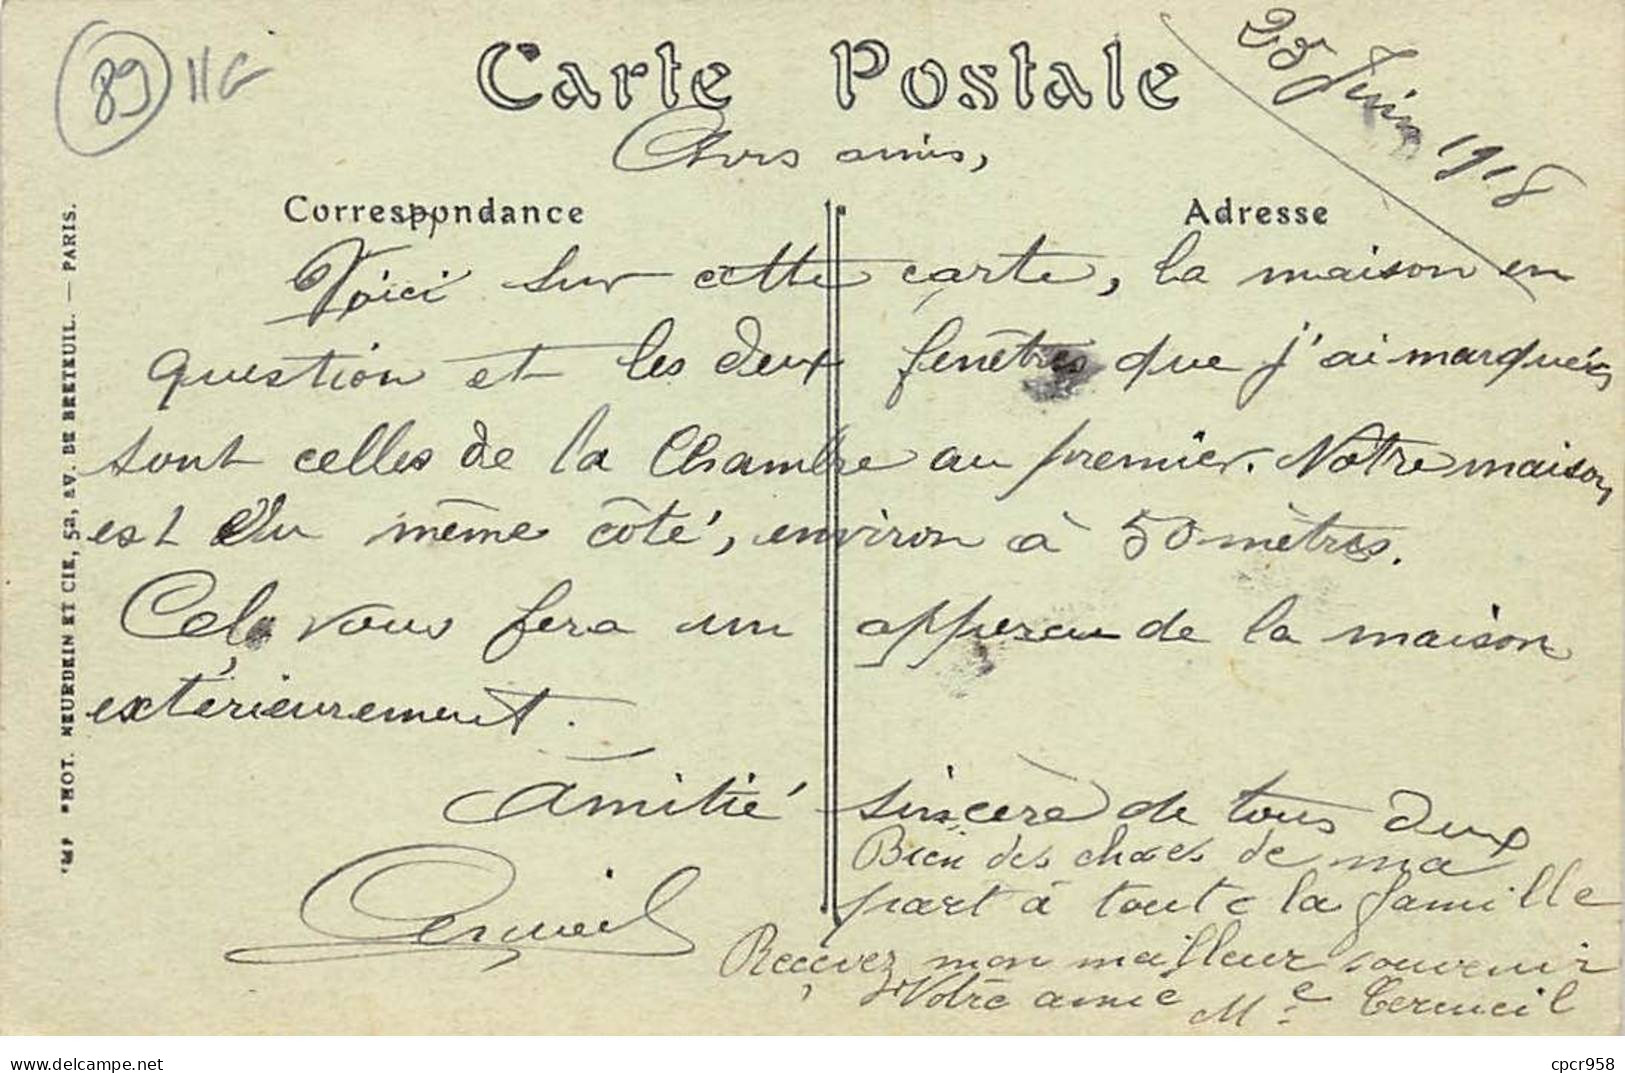 89 11G
Carte Postale
25 Juin 1918
Chers amis,
Correspondance Adresse
Voici sur cette carte, la maison en
question et les deux fenêtres que j'ai marquées
sont celles de la Chambre au premier. Notre maison,
est du même côté, environ à 50 mètres.
Cela vous fera un appercu de la maison
extérieurement.
Amitié sincère de tous deux
Bien des choses de ma
part à toute la famille
Recevez mon meilleur souvenir
Votre amie Me Cermeil
IMP. PHOT. NEURDEIN ET CIE, 52, AV. DE BRETEUIL. — PARIS.
https://www.delcampe.net cpcr958